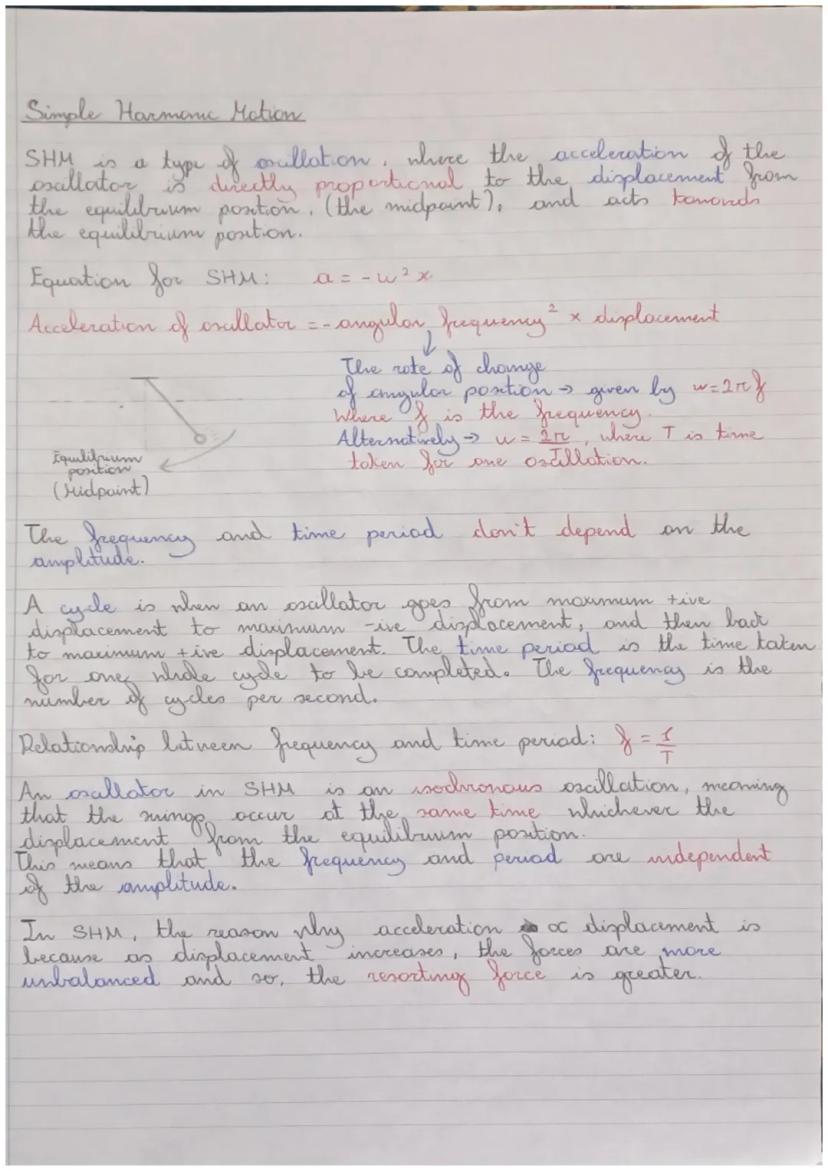 Simple Harmonic Motion
SHM is a type of oscillation, where the acceleration of the
oscillator is directly proportional to the displacement from
the equilibrium position, (the midpoint), and acts towards
the equilibrium position.
Equation for SHM: a = - ω² x
Acceleration of oscillator = - angular frequency² × displacement
↓
The rate of change
of angular position → given by ω=2πf
Where f is the frequency.
Alternatively → ω = 2π/T, where T is time
taken for one oscillation.
Equilibrium
position
(Midpoint)
The frequency and time period don't depend on the
amplitude.
A cycle is when an oscillator goes from maximum +ive
displacement to maximum -ive displacement, and then back
to maximum +ive displacement. The time period is the time taken
for one whole cycle to be completed. The frequency is the
number of cycles per second.
Relationship between frequency and time period: f = 1/T
An oscillator in SHM is an isochronous oscillation, meaning
that the swings occur at the same time whichever the
displacement from the equilibrium position.
This means that the frequency and period are independent
of the amplitude.
In SHM, the reason why acceleration ∝ displacement is
because as displacement increases, the forces are more
unbalanced and so, the resorting force is greater.